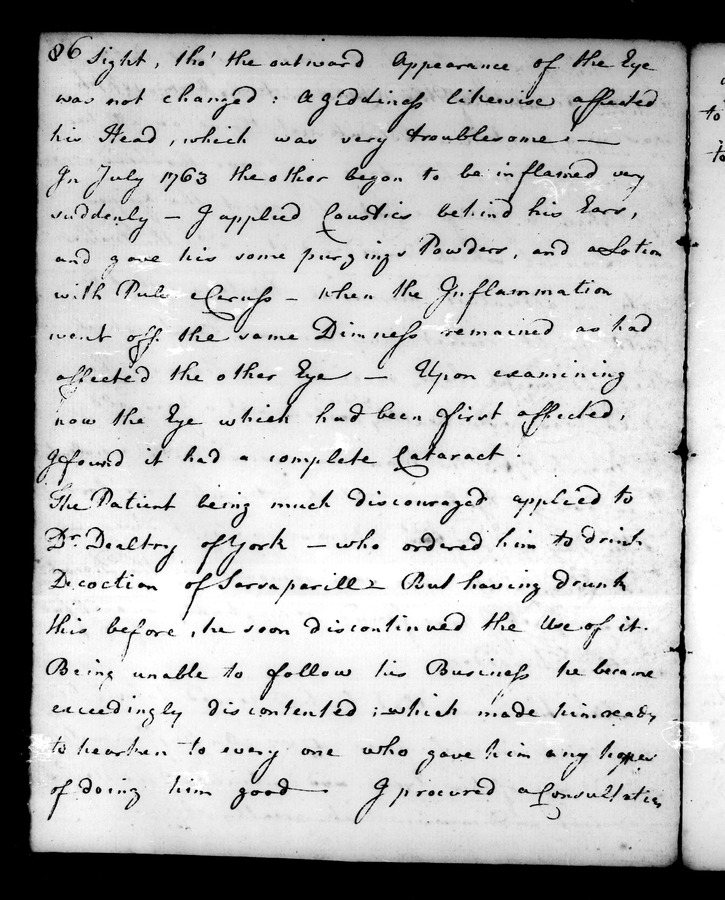 86
Sight, tho' the outward Appearance of the Eye
was not changed: A Giddiness likewise affected
his Head, which was very troublesome. —
In July 1763 the other began to be inflamed very
suddenly — I applied Caustics behind his Ears,
and gave him some purging Powders, and a Lotion
with Pulv eCeruss — when the Inflammation
went off the same Dimness remained as had
affected the other Eye — Upon examining
now the Eye which had been first affected,
I found it had a complete Cataract.
The Patient being much discouraged applied to
Dr. Dealtry of York — who ordered him to drink
Decoction of Sarsaparill. But having drunk
this before, he soon discontinued the Use of it.
Being unable to follow his Business he became
exceedingly discontented; which made him ready
to hearken to every one who gave him any hopes
of doing him good — I procured a Consultation
to
to